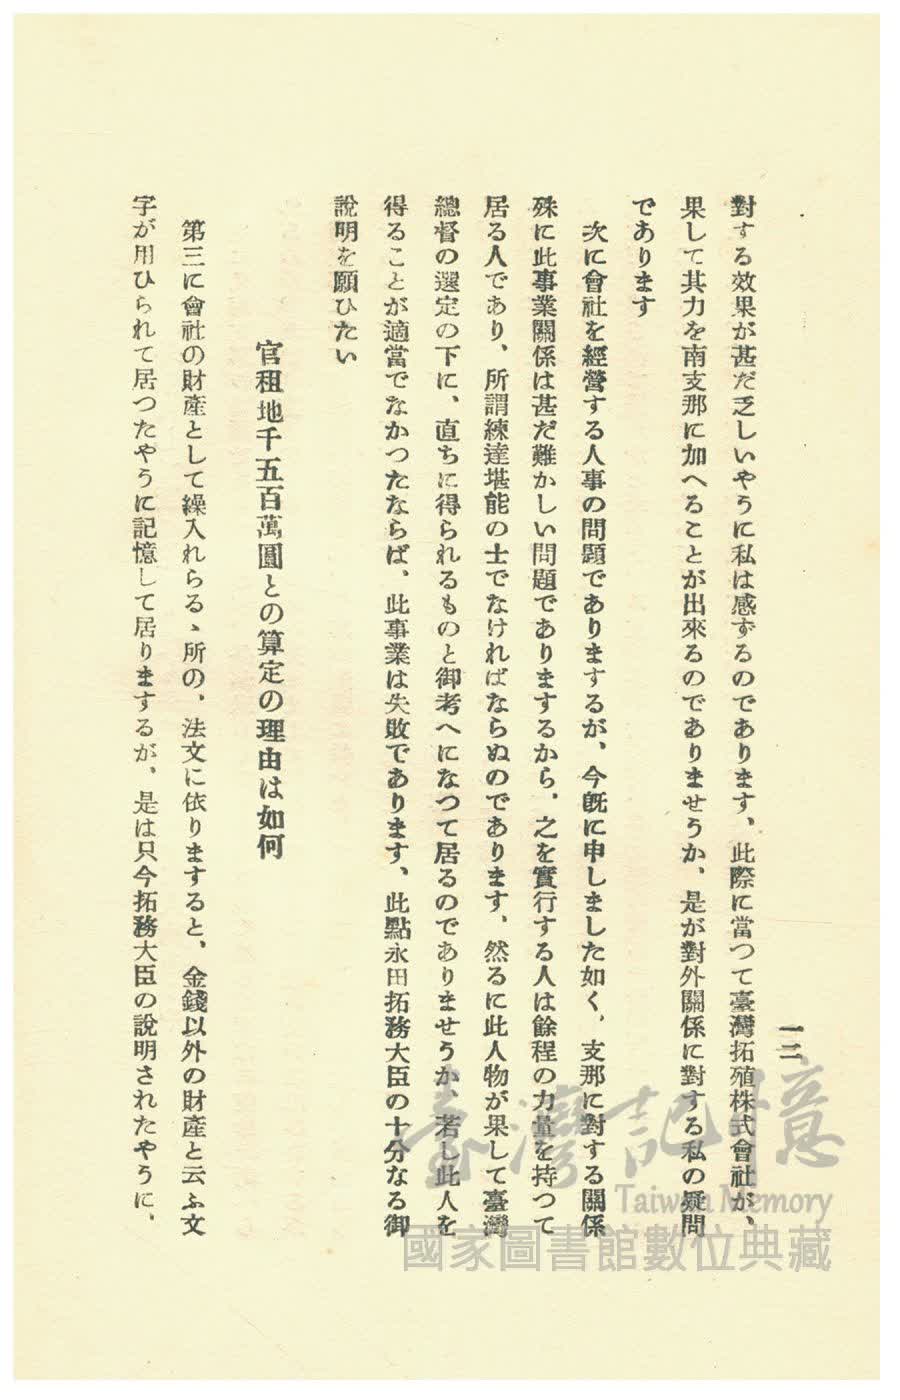 一二
對する效果が甚だ乏しいやうに私は感ずるのであります、此際に當つて臺灣拓殖株式會社が、
果して其力を南支那に加へることが出來るのでありませうか、是が對外關係に對する私の疑問
であります
次に會社を經營する人事の問題でありまするが、今既に申しました如く、支那に對する關係
殊に此事業關係は甚だ難かしい問題でありまするから、之を實行する人は餘程の力量を持つて
居る人であり、所謂練達堪能の士でなければならぬのであります、然るに此人物が果して臺灣
總督の選定の下に、直ちに得られるものと御考へになつて居るのでありませうか、若し此人を
得ることが適當でなかつたならば、此事業は失敗であります、此點永田拓務大臣の十分なる御
說明を願ひたい
官租地千五百萬圓との算定の理由は如何
第三に會社の財產として繰入れらるゝ所の、法文に依りますると、金錢以外の財產と云ふ文
字が用ひられて居つたやうに記憶して居りまするが、是は只今拓務大臣の說明されたやうに、
臺灣記憶
Taiwan Memory
國家圖書館數位典藏